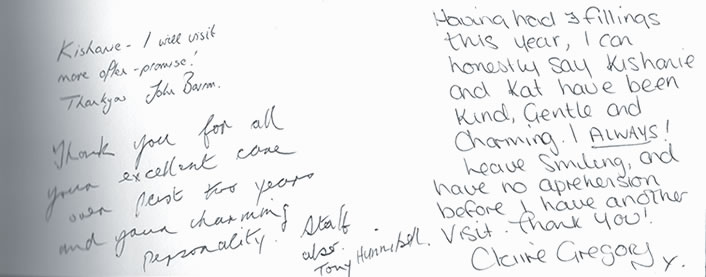 Kishanie - I will visit
more often - promise!
Thankyou John
Thank you for all
your excellent care
over past two years
and your charming
personality. Staff
also.
Tony Hunnibell.
Having had 3 fillings
this year, I can
honestly say Kishanie
and Kat have been
Kind, Gentle and
Charming. I ALWAYS!
Leave Smiling, and
have no aprehension
before I have another
Visit. Thank You!
Claire Gregory